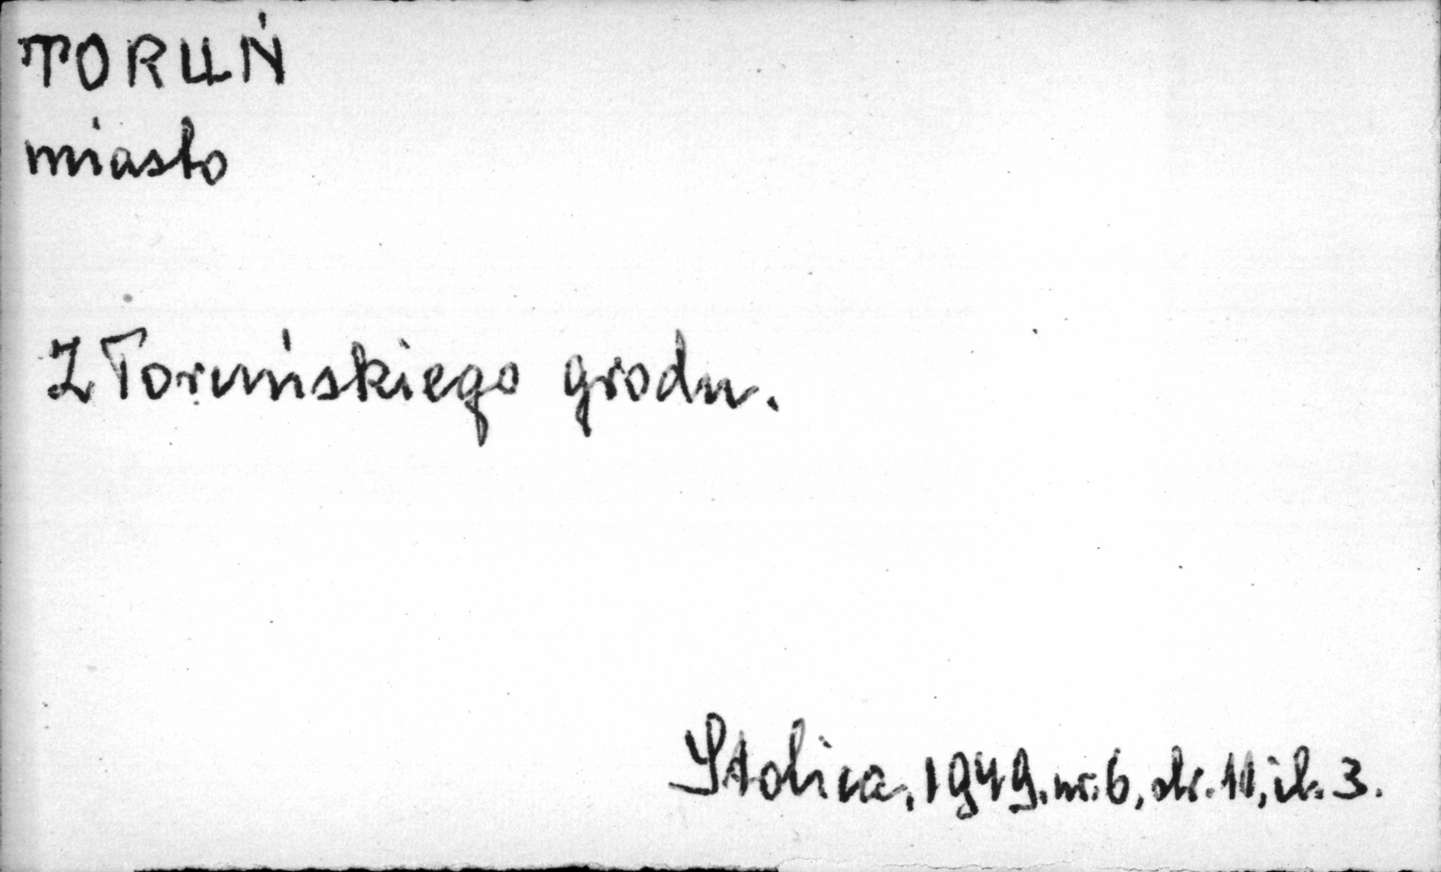 TORUŃ
miasto
Z Toruńskiego grodu.
Stolica, 1949, nr. 6, str. 11, il. 3.